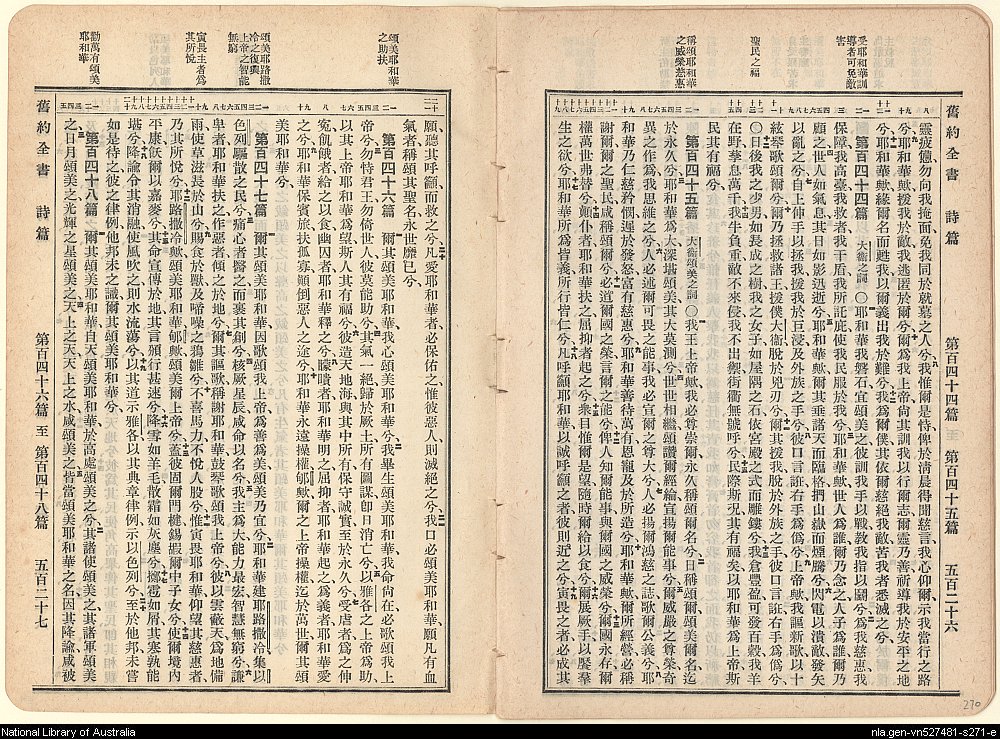 受耶和華訓
導者可免敵
害
聖民之福
稱頌耶和華
之威榮慈惠
舊約全書 詩篇 第百四十四篇 至 第百四十五篇 五百二十六
靈疲憊勿向我掩面免我同於就墓之人兮我惟爾是恃俾於淸晨得聞慈言我心仰爾示我當行之路
兮耶和華歟援我於敵我逃匿於爾兮爾爲我上帝尙其訓我以行爾志爾靈乃善祈導我於安平之地
兮耶和華歟緣爾名而甦我以爾義出我於難兮我爲爾僕其依爾慈絕我敵苦我者悉滅之兮
第百四十四篇 大衞之詞 〇耶和華我磐石宜頌美之彼訓我手以戰教我指以鬭兮爲我慈惠我
保障我高臺我救者我干盾我所託庇使我民服於我兮耶和華歟世人爲誰爾乃念之人子爲誰爾
顧之世人如氣息其日如影迅逝兮耶和華歟爾其垂諸天而臨格捫山嶽而煙騰兮閃電以潰敵發矢
以亂之兮自上伸手以拯我援我於巨浸及外族之手兮彼口言誑右手爲僞兮上帝歟我謳新歌以十
絃琴歌頌爾兮爾乃拯救諸王援僕大衞脫於兇刃兮爾其援我脫於外族之手彼口言誑右手爲僞兮
〇日後我之少男如長成之樹我之女子如屋隅之石依宮殿之式而雕鏤兮我倉豐盈可發百穀我羊
在野孳息萬千我牛負重敵不來侵我不出禦街衢無號呼兮民際斯況其有福矣以耶和華爲上帝斯
民其有福兮
第百四十五篇 大衞頌美之詞 〇我王上帝歟我必尊崇爾永久稱頌爾名兮日稱頌爾頌爾名迄
於永久兮耶和華爲大深堪頌美其大莫測兮世世相繼頌讚爾經綸宣揚爾能事兮爾威嚴之尊榮奇
異之作爲我思維之兮人必述爾可畏之能事我必宣爾之尊大兮人必揚爾鴻慈之誌歌爾公義兮耶
和華乃仁慈矜憫遲於發怒富有慈惠兮耶和華善待萬有恩寵及於所造兮耶和華歟爾所經營必稱
謝爾爾之聖民咸稱頌爾兮必道爾國之榮言爾之能兮俾人知爾能事與爾國之威榮兮爾國永存爾
權萬世弗替兮顚仆者耶和華扶之屈抑者起之兮衆目惟爾是望隨時爾賜以糧兮爾展厥手以饜羣
生之欲兮耶和華所爲皆義所行皆仁兮凡呼籲耶和華以誠呼籲爾之者彼則近之兮寅畏之者必成其
頌美耶和華
之助扶
頌美耶路撒
冷之復興
上帝之智能
無窮
寅畏主者爲
其所悅
勸萬有頌美
耶和華
願聽其呼籲而救之兮凡愛耶和華者必保佑之惟彼惡人則滅絕之兮我口必頌美耶和華願凡有血
氣者稱頌其聖名永世靡已兮
第百四十六篇 爾其頌美耶和華我心頌美耶和華兮我畢生頌美耶和華我命尙在必歌頌我上
帝兮勿恃君王勿倚世人彼莫能助兮其氣一絕歸於厥土所有圖謀卽日消亡兮以雅各之上帝爲助
以其上帝耶和華爲望斯人其有福兮彼造天地海與其中所有保守誠實至於永久兮受虐者爲之伸
冤飢餓者給之以食幽囚者耶和華釋之兮矇瞶者耶和華明之屈抑者耶和華起之爲義者耶和華愛
之兮耶和華保賓旅扶孤寡顚倒惡人之途兮耶和華永遠操權郇歟爾之上帝操權迄於萬世爾其頌
美耶和華兮
第百四十七篇 爾其頌美耶和華因歌頌我上帝爲善爲美頌美乃宜兮耶和華建耶路撒冷集以
色列驅散之民兮痛心者醫之而裹其創兮核厥星辰咸命以名兮我主爲大能力最宏智慧無窮兮謙
卑者耶和華扶之作惡者傾之於地兮爾其謳歌稱謝耶和華鼓琴歌頌我上帝兮彼以雲蔽天爲地備
雨使草滋長於山兮賜食於獸及啼噪之鴉雛兮不喜馬力不悅人股兮惟寅畏耶和華仰望其慈惠者
乃其所悅兮耶路撒冷歟頌美耶和華郇歟頌美爾上帝兮蓋彼固爾門楗錫嘏爾中子女兮使爾境內
平康飫爾以嘉麥兮其命宣傳於地其言頒行甚速兮降雪如羊毛散霜如灰塵兮擲雹如屑其寒孰能
堪兮降諭令其消融使風吹之則水流蕩兮以其道示雅各以其典章律例示以色列兮至於他邦未嘗
如是待之彼之律例他邦未之識爾其頌美耶和華兮
第百四十八篇 爾其頌美耶和華自天頌美耶和華於高處頌美之兮其諸使頌美之其諸軍頌美
之日月頌美之光輝之星頌美之天上之天天上之水頌美之皆當頌美耶和華之名因其降諭咸被
舊約全書 詩篇 第百四十六篇 至 第百四十八篇 五百二十七
270
National Library of Australia
nla.gen-vn527481-s271-e